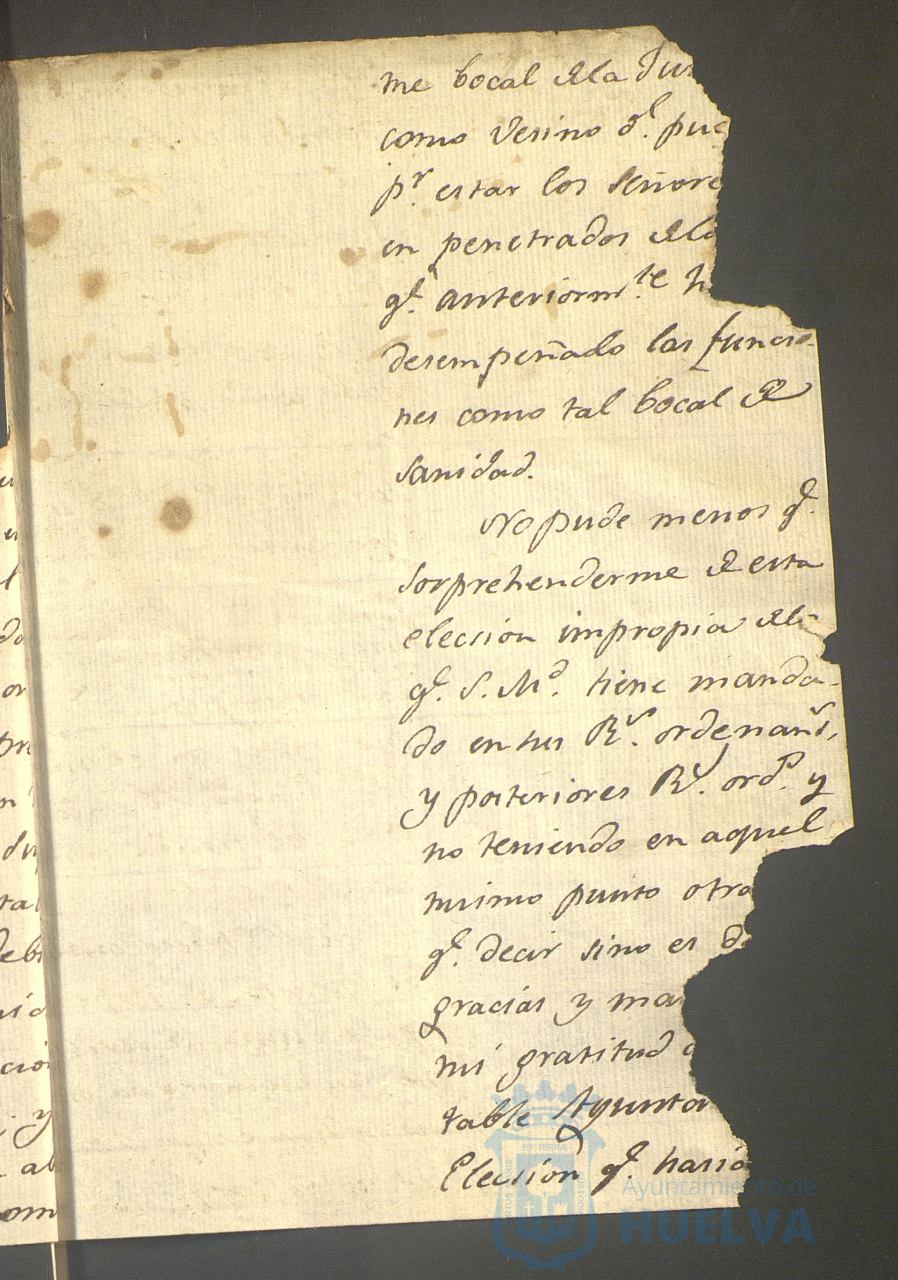 me bocal de la Jun
como Vesino q.l pue
p.r estar los Señore
en penetrados de la
q.e anteriorm.te h
desempeñado las funcio-
nes como tal bocal de
sanidad.
No pude menos q.e
sorprehenderme de esta
elección impropia de
q.e S. M.d tiene manda-
do en sus R.s ordenanz.s,
y posteriores R.s ord.s y
no teniendo en aquel
mismo punto otra
q.e decir sino es d
gracias y ma
mi gratitud a
table Ayunta
Elección q.e hasia
u
u
l
do
or
pr
n
du
ta
deb
cion
y
ab
om
ET TERRÆ
Ayuntamiento de
HUELVA